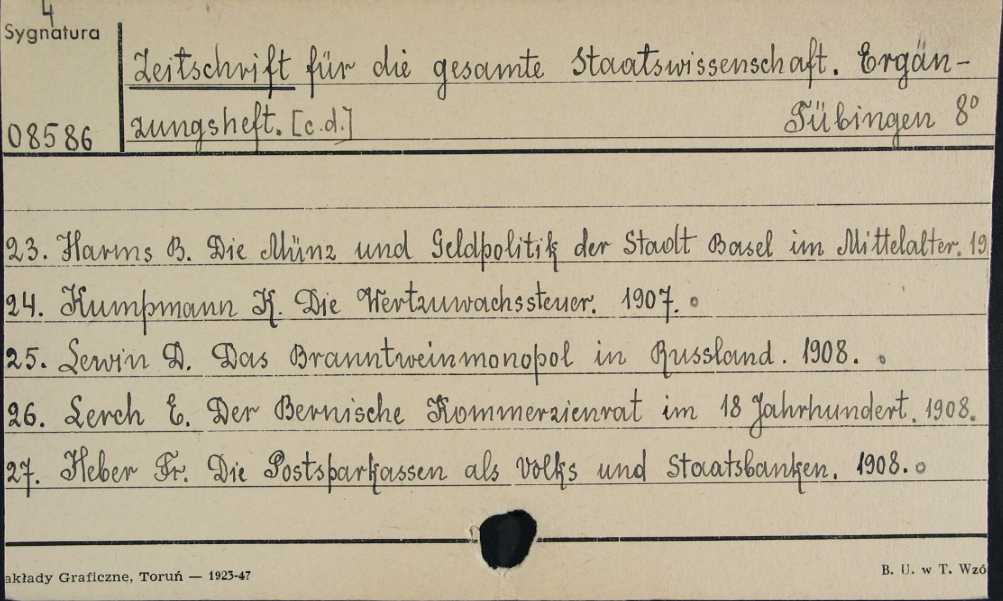 4
Sygnatura
Zeitschrift für die gesamte Staatswissenschaft. Ergän-
08586
zungsheft. [c.d.] Tübingen 8°
23. Harms B. Die Münz und Geldpolitik der Stadt Basel im Mittelalter. 19
24. Kumpmann K. Die Wertzuwachssteuer. 1907.
25. Lewin D. Das Branntweinmonopol in Russland. 1908.
26. Lerch E. Der Bernische Kommerzienrat im 18 Jahrhundert. 1908.
27. Heber Fr. Die Postsparkassen als Volks und Staatsbanken. 1908.
akłady Graficzne, Toruń — 1923-47
B. U. w T. Wzó